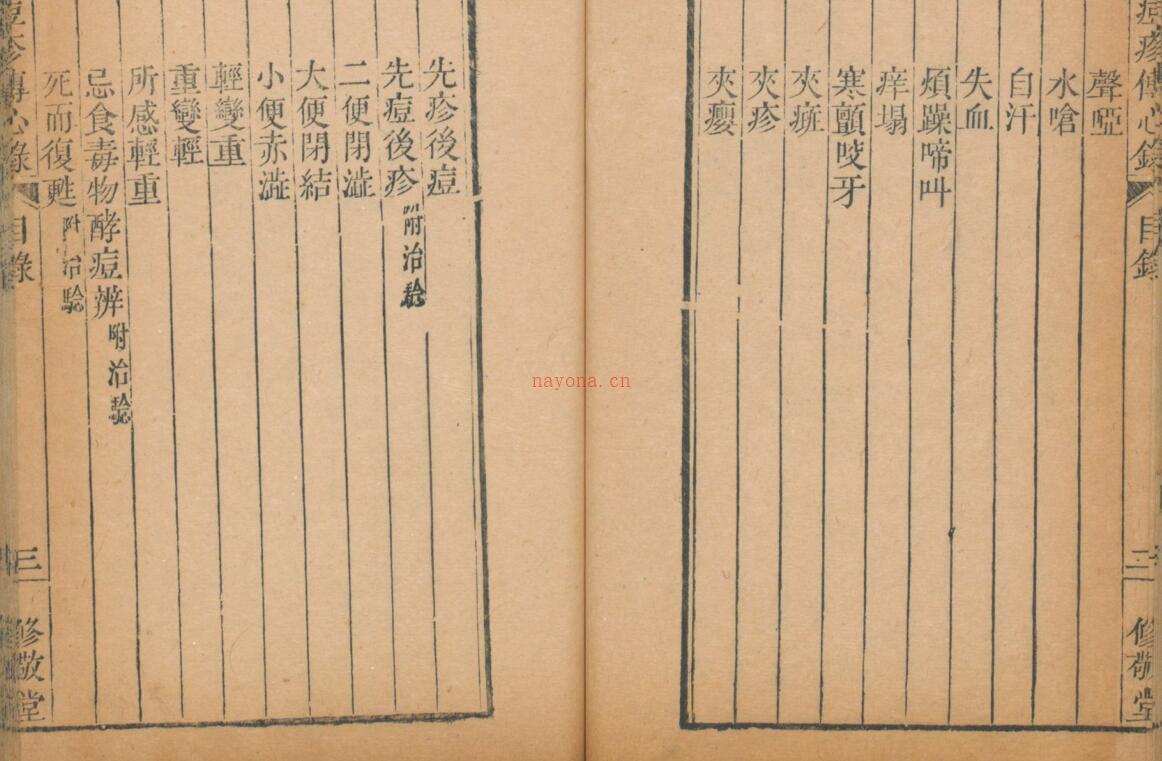 痘疹傳心錄 目錄 二 修敬堂
聲啞
水嗆
自汗
失血
煩躁啼叫
痒塌
寒顫咬牙
夾斑
夾疹
夾癭
先疹後痘
先痘後疹 附治驗
二便閉澁
大便閉結
小便赤澁
輕變重
重變輕
所感輕重
忌食毒物酵痘辨 附治驗
死而復甦 附治驗
痘疹傳心錄 目錄 三 修敬堂
nayona.cn